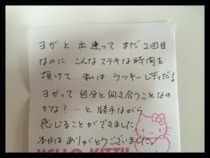 ヨガと 出逢って まだ2回目
なのに こんなステキな時間を
頂けて 私は ラッキーレディだ!
ヨガって 自分と 向き合うことなの
かな? … と 勝手ながら
感じることができました
本日は ありがとうございました
HELLO KITTY